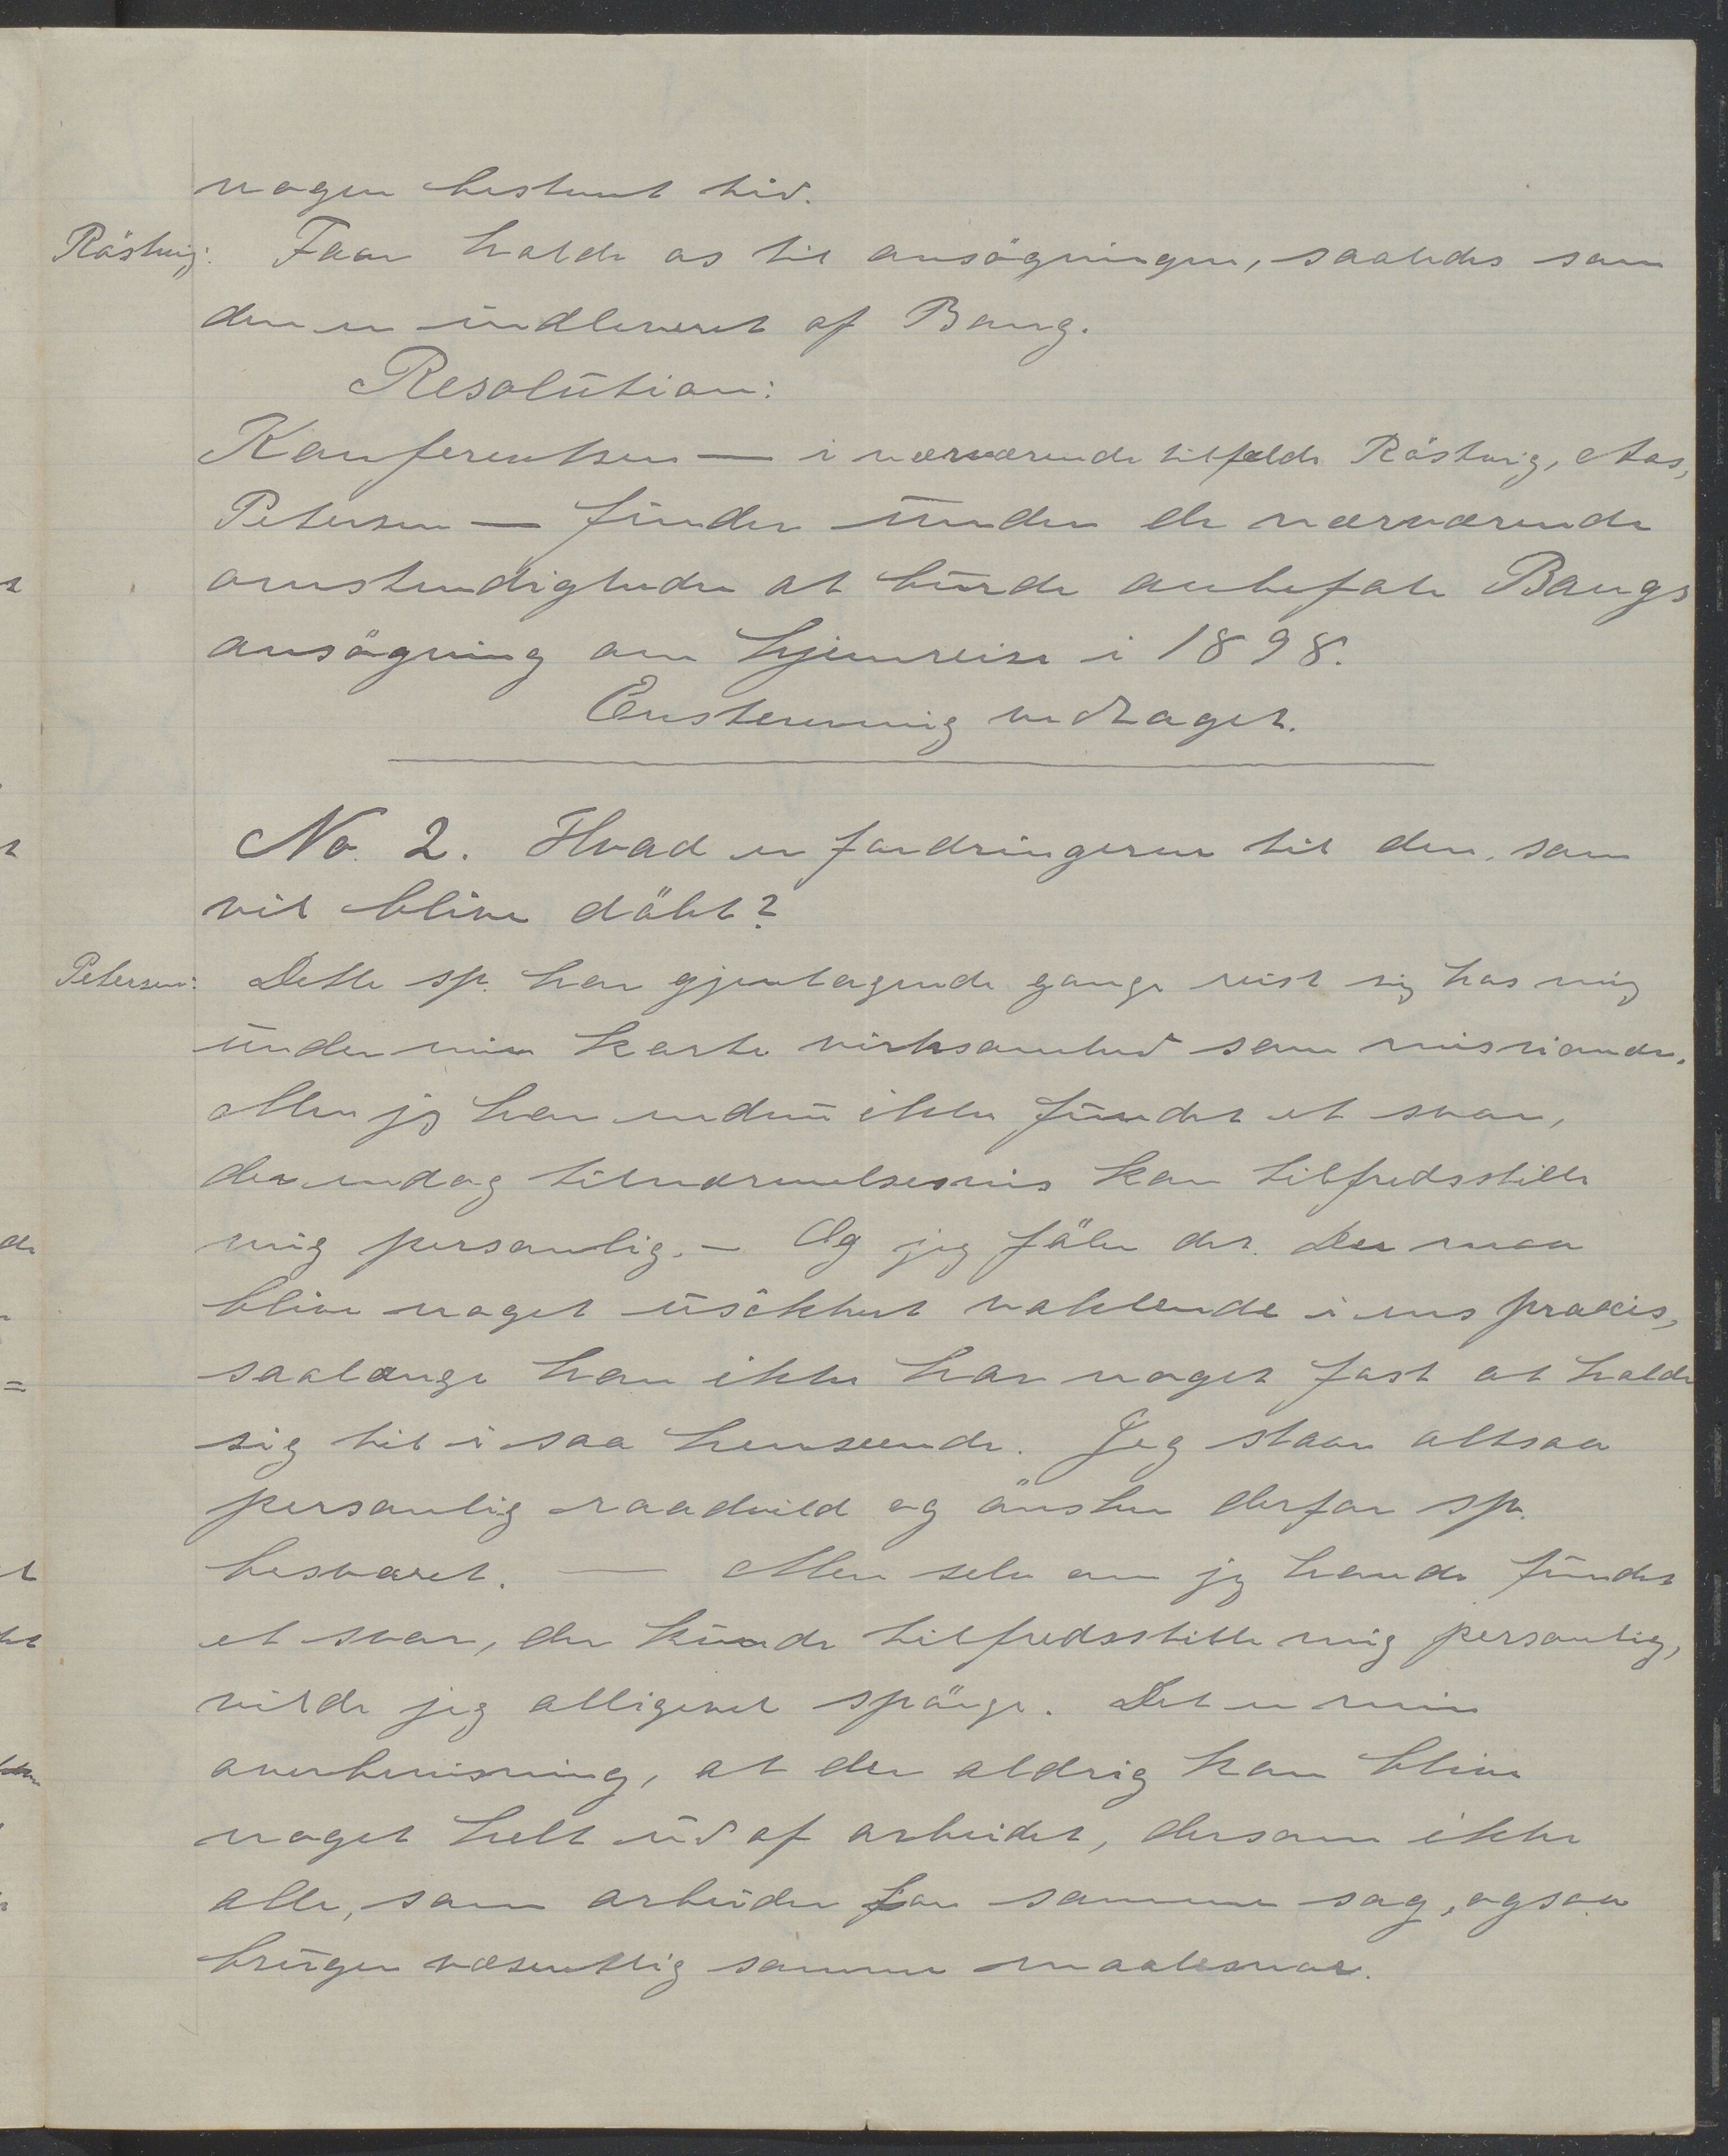 nogen bestemt tid.
Röstvig: Faar holde os til ansögningen, saaledes som
den er indleveret af Bang.
Resolution:
Konferentsen — i nærværende tilfælde Röstvig, Aas,
Petersen — finder under de nærværende
omstendigheder at burde anbefale Bangs
ansögning om hjemreise i 1898.
Enstemmig vedtaget.
No. 2. Hvad er fordringerne til den, som
vil blive döbt?
Petersen: Dette sp. har gjentagende gange reist sig hos mig
under min korte virksomhed som missionær.
Men jeg har endnu ikke fundet et svar,
der endog tilnærmelsesvis kan tilfredsstille
mig personlig. — Og jeg föler det. Der maa
blive noget usikkert vaklende i ens praxis,
saalænge han ikke har noget fast at holde
sig til i saa henseende. Jeg staar altsaa
personlig raadvild og önsker derfor sp.
besvaret. — Men selv om jeg havde fundet
et svar, der kunde tilfredsstille mig personlig,
vilde jeg alligevel spörge. Det er min
overbevisning, at der aldrig kan blive
noget helt ud af arbeidet, dersom ikke
alle, som arbeider for samme sag, ogsaa
bruger væsentlig samme